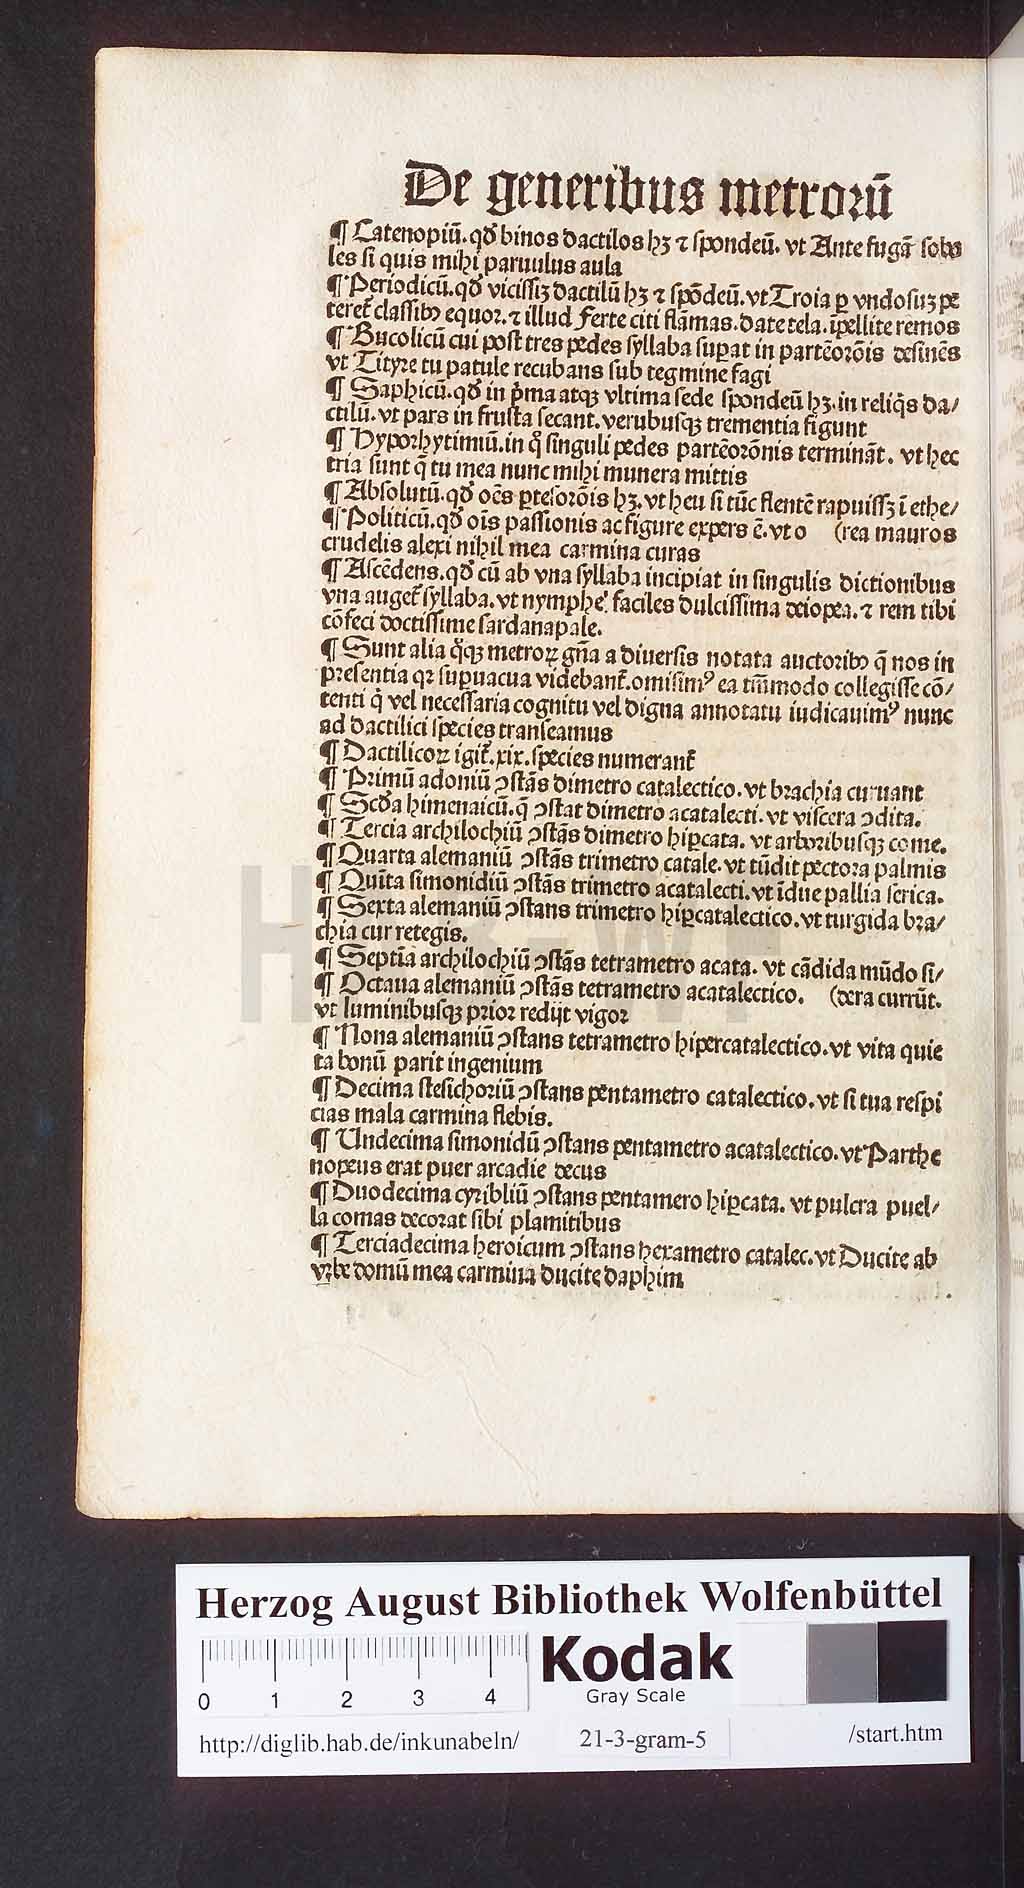 De generibus metrorū
¶ Catenopiū. qđ binos dactilos hꝫ ⁊ spondeū. vt Ante fugā sobo
les si quis mihi paruulus aula
¶ Periodicū. qđ vicissiꝫ dactilū hꝫ ⁊ spōdeū. vt Troia ꝑ vndosuꝫ pe
teret̄ classibꝰ equor. ⁊ illud ferte citi flāmas. date tela. īpellite remos
¶ Bucolicū cui post tres pedes syllaba suꝑat in partēorōis desinēs
vt Tityre tu patule recubans sub tegmine fagi
¶ Saphicū. qđ in p̄ma atqꝫ vltima sede spondeū hꝫ. in reliq̄s da/
ctilū. vt pars in frusta secant. verubusqꝫ trementia figunt
¶ Hyporhytimiū. in q̊ singuli pedes partēorōnis termināt. vt hec
tria sunt q̄ tu mea nunc mihi munera mittis
¶ Absolutū. qđ oēs ꝑtesorōis hꝫ. vt heu si tūc flentē rapuissꝫ ī ethe/
¶ Politicū. qđ oīs passionis ac figure expers ē. vt o (rea mauros
crudelis alexi nihil mea carmina curas
¶ Ascēdens. qđ cū ab vna syllaba incipiat in singulis dictionibus
vna auget̄ syllaba. vt nymphe. faciles dulcissima deiopea. ⁊ rem tibi
cōfeci doctissime sardanapale.
¶ Sunt alia q̊qꝫ metroꝝ gn̄a a diuersis notata auctoribꝰ q̄ nos in
presentia qꝛ suꝑuacua videbant̄. omisimꝰ ea tm̄modo collegisse cō/
tenti q̄ vel necessaria cognitu vel digna annotatu iudicauimꝰ nunc
ad dactilici species transeamus
¶ Dactilicoꝝ igit̄. xix. species numerant̄
¶ Primū adoniū ꝯstās dimetro catalectico. vt brachia curuant
¶ Scđa himenaicū. q̄ ꝯstat dimetro acatalecti. vt viscera ꝯdita.
¶ Tercia archilochiū ꝯstās dimetro hiꝑcata. vt arboribusqꝫ come.
¶ Quarta alemaniū ꝯstās trimetro catale. vt tūdit pectora palmis
¶ Quīta simonidiū ꝯstās trimetro acatalecti. vt īdue pallia serica.
¶ Sexta alemaniū ꝯstans trimetro hiꝑcatalectico. vt turgida bra/
chia cur retegis.
¶ Septīa archilochiū ꝯstās tetrametro acata. vt cādida mūdo si/
¶ Octaua alemaniū ꝯstās tetrametro acatalectico. (dera currūt.
vt luminibusqꝫ prior redijt vigor
¶ Nona alemaniū ꝯstans tetrametro hipercatalectico. vt vita quie
ta bonū parit ingenium
¶ Decima stesichoriū ꝯstans pentametro catalectico. vt si tua respi
cias mala carmina flebis.
¶ Undecima simonidū ꝯstans pentametro acatalectico. vt Parthe
nopeus erat puer arcadie decus
¶ Duodecima cyribliū ꝯstans pentamero hiꝑcata. vt pulcra puel/
la comas decorat sibi plamitibus
¶ Terciadecima heroicum ꝯstans hexametro catalec. vt Ducite ab
vrbe domū mea carmina ducite daphim
HAB-WF
Herzog August Bibliothek Wolfenbüttel
Kodak
Gray Scale
0 1 2 3 4
http://diglib.hab.de/inkunabeln/ 21-3-gram-5 /start.htm